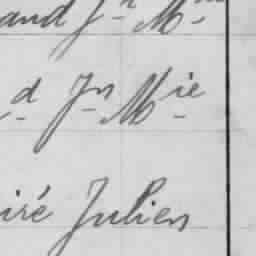 and Jn M
d Jn Mie
iré Julien